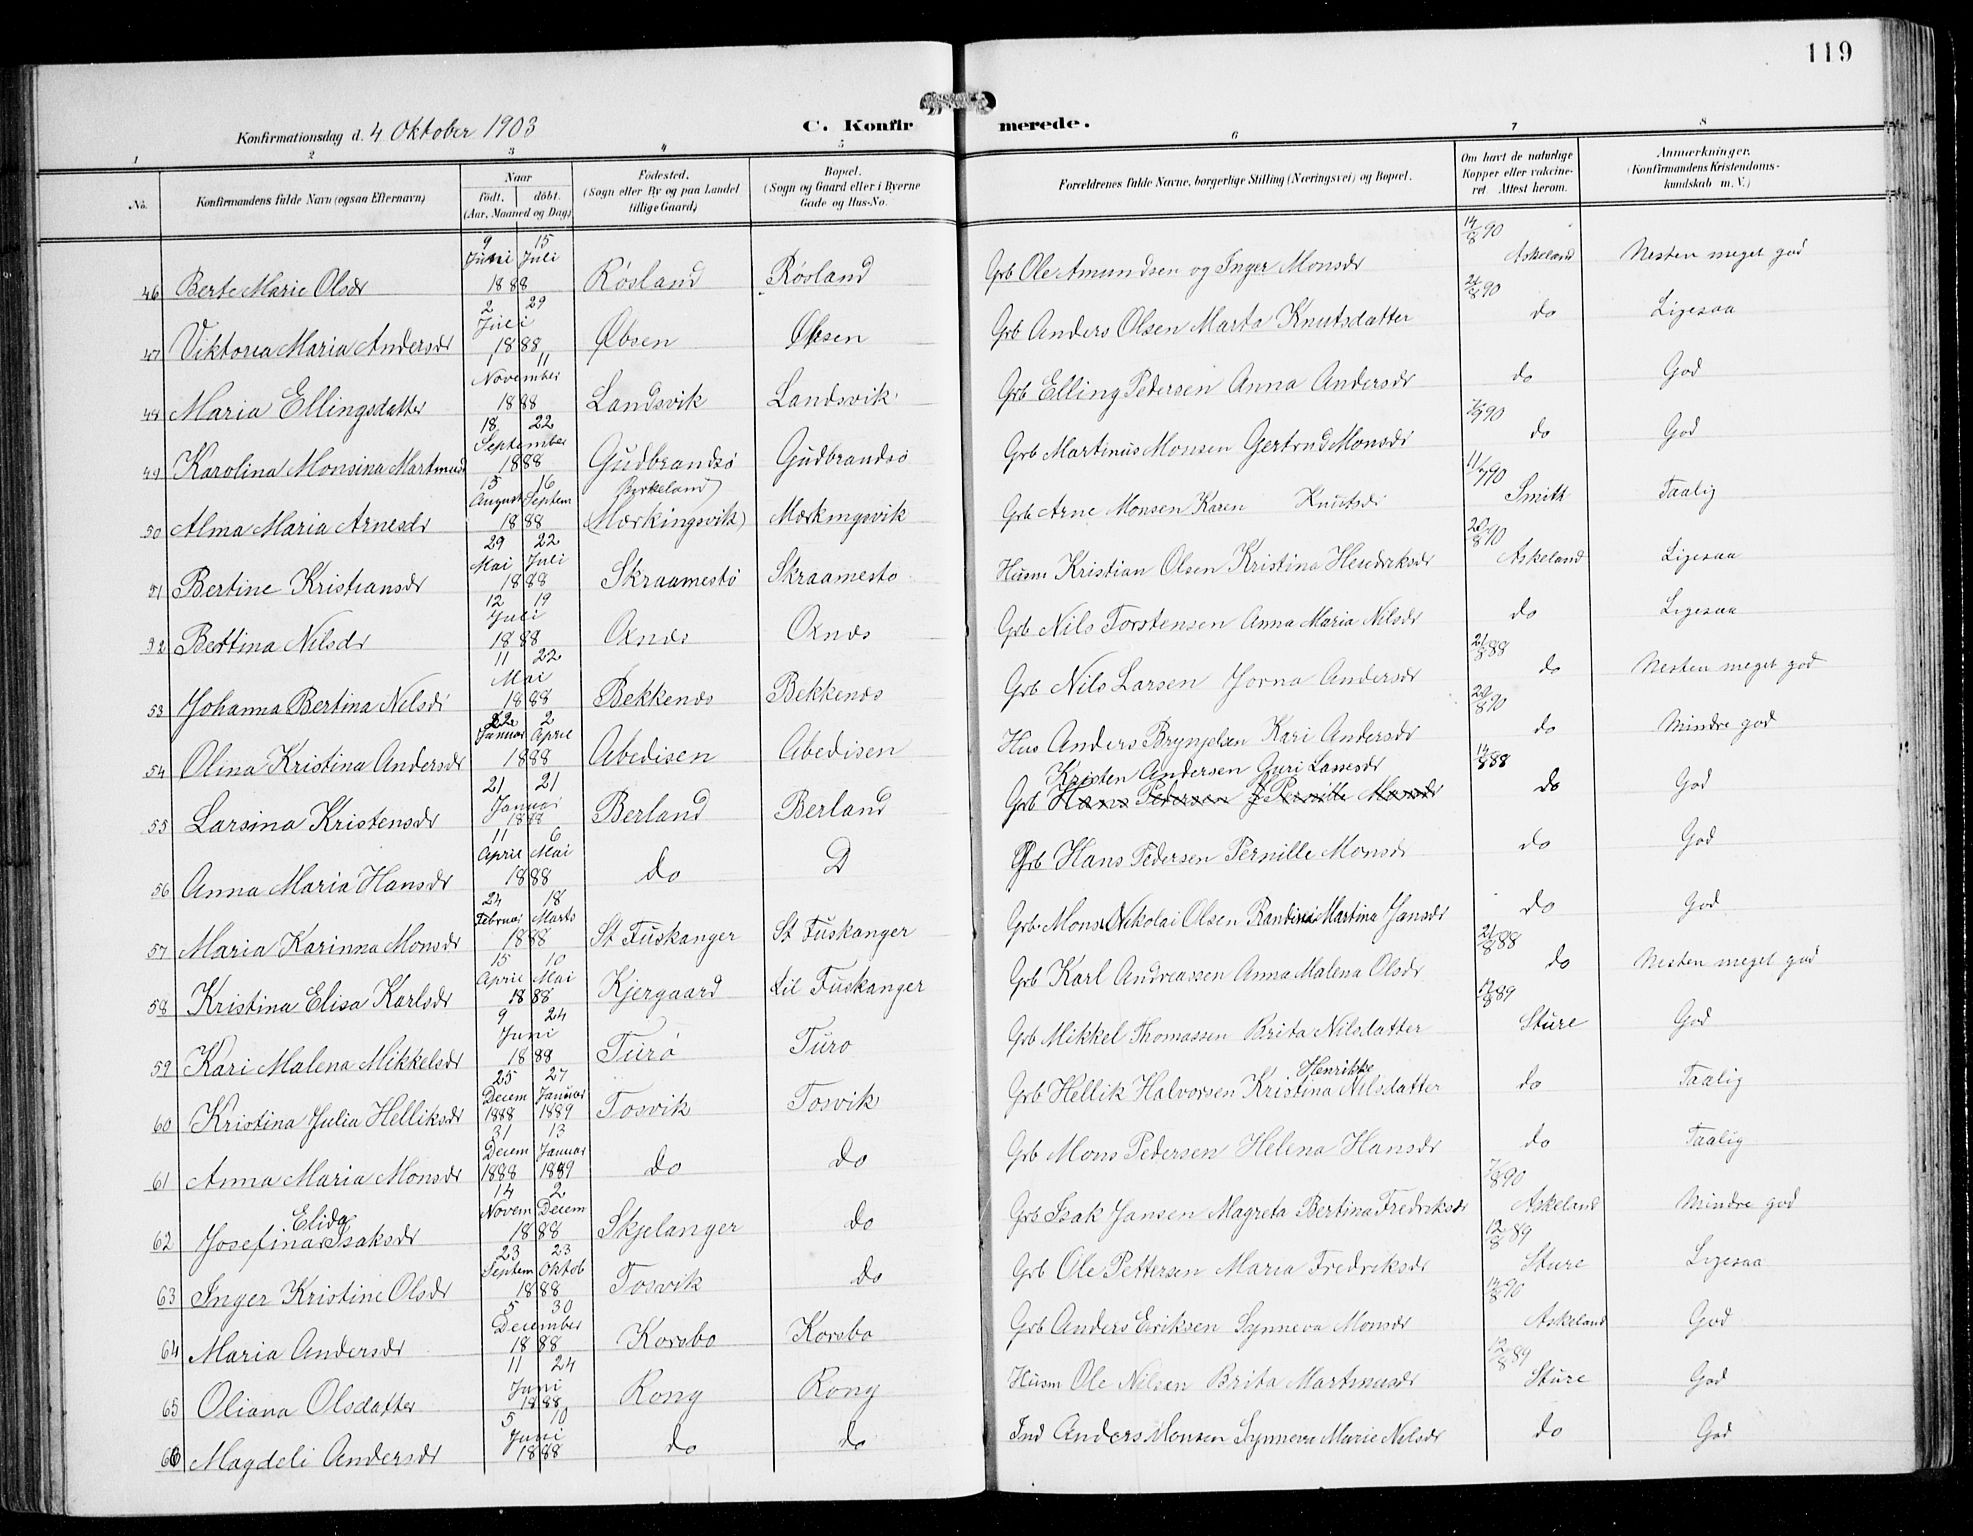 119
Konfirmationsdag d. 4 Oktober 1903 C. Konfirmerede.
1 2 3 4 5 6 7 8
No. Konfirmandens fulde Navn (ogsaa Efternavn) Naar födt. döbt. (Aar, Maaned og Dag) Födested. (Sogn eller By og paa Landet tillige Gaard) Bopæl. (Sogn og Gaard eller i Byerne Gade og Hus-No. Forældrenes fulde Navne, borgerlige Stilling (Næringsvei) og Bopæl. Om havt de naturlige Kopper eller vakcineret Attest herom. Anmærkninger. (Konfirmandens Kristendomskundskab m. V.)
46 Berte Marie Olsdr 9 Juni 15 Juli 1888 Røsland Røsland Grb Ole Amundsen og Inger Monsdr 14/8 90 Askeland Nesten meget god
47 Viktorea Maria Andersdr 2 29 Juli 1888 Øbsen Øbsen Grb Anders Olsen Marta Knutsdatter 21/8 90 do Ligesaa
48 Maria Ellingsdatter 1 11 November 1888 Landsvik Landsvik Grb Elling Pedersen Anna Andersdr do God
49 Karolina Monsina Martinusd 18 22 September 1888 Gudbrandsø Gudbrandsø Grb Martinus Monsen Gertrud Monsdr 90 do God
50 Alma Maria Arnesdr 15 August 16 Septem 1888 Birkeland (Mærkingsvik) Mærkingsvik Grb Arne Monsen Karen Knutsdr 11/7 90 Smith Taalig
51 Bertine Kristiansdr 29 Mai 22 Juli 1888 Skraamestø Skraamesto Husm Kristian Olsen Kristina Hendriksdr 20/8 90 Askeland Ligesaa
52 Bertina Nilsdr 12 19 Juli 1888 Oxnes Oxnes Grb Nils Torstensen Anna Maria Nilsdr do Ligesaa
53 Johanna Bertina Nilsdr 11 22 Mai 1888 Bekkenes Bekkenes Grb Nils Larsen Jorna Andersdr 21/8 88 do Nesten meget god
54 Olina Kristina Andersdr 22 Januar 2 April 1888 Abedisen Abedisen Hus Anders Brynjelsen Kari Andersdr 20/8 90 do Mindre god
55 Larsina Kristensdr 21 21 Januar 1888 Berland Berland Kristen Andersen Guri Lassesdr Grb Hans Pedersen Pernille Monsdr 14/8 88 do God
56 Anna Maria Hansdr 11 April 6 Mai 1888 do D Grb Hans Pedersen Pernille Monsdr do God
57 Maria Karinna Monsdr 24 Februar 18 Marts 1888 St Fuskanger St Fuskanger Grb Mons Nikolai Olsen Randine Martina Jansdr do God
58 Kristina Elisa Karlsdr 15 April 10 Mai 1888 Kjergaard Lil Fuskanger Grb Karl Andreassen Anna Malena Olsdr 21/8 88 do Nesten meget god
59 Kari Malena Mikkelsdr 9 24 Juni 1888 Turø Turo Grb Mikkel Thomassen Brita Nilsdatter 12/8 89 Sture God
60 Kristina Julia Helliksdr 25 Decem 1888 27 Januar 1889 Tosvik Tosvik Grb Hellik Halvorsen Kristina Henrikke Nilsdatter do Taalig
61 Anna Maria Monsdr 31 Decem 1888 13 Januar 1889 do do Grb Mons Pedersen Helena Hansdr do Taalig
62 Josefina Elida Isaksdr 14 Novem 2 Decem 1888 Skjelanger do Grb Isak Jansen Magreta Bertina Fredriksdr 7/8 90 Askeland Mindre god
63 Inger Kristine Olsdr 23 Septem 23 Oktob 1888 Tosvik do Grb Ole Pettersen Maria Fredriksdr 12/8 89 Sture Ligesaa
64 Maria Andersdr 5 30 December 1888 Korsbo Korsbo Grb Anders Eriksen Synneva Monsdr 14/8 90 Askeland God
65 Oliana Olsdatter 11 24 Juni 1888 Rong Rong Husm Ole Nilsen Brita Martinusdr 12/8 89 Sture God
66 Magdeli Andersdr 5 10 Juni 1888 do do Ind Anders Monsen Synneve Marie Nilsdr do God